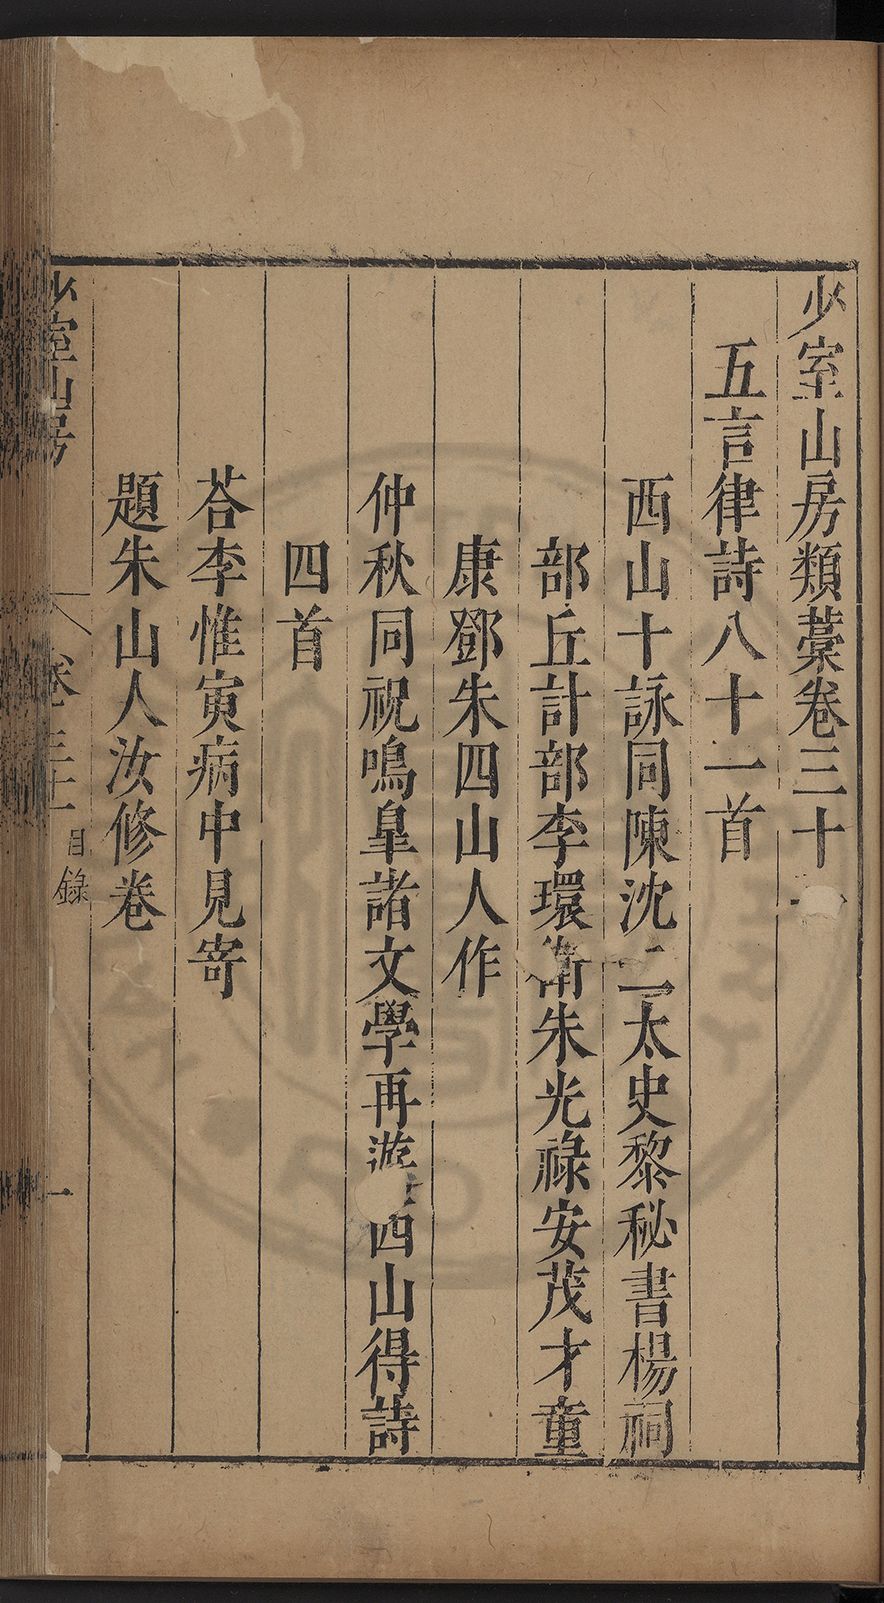 少室山房類藁卷三十
五言律詩八十一首
西山十詠同陳沈二太史黎秘書楊祠
部丘計部李環衛朱光祿安茂才童
康鄧朱四山人作
仲秋同祝鳴臯諸文學再遊西山得詩
四首
荅李惟寅病中見寄
題朱山人汝修卷
少室山房 卷三十一 目錄 一